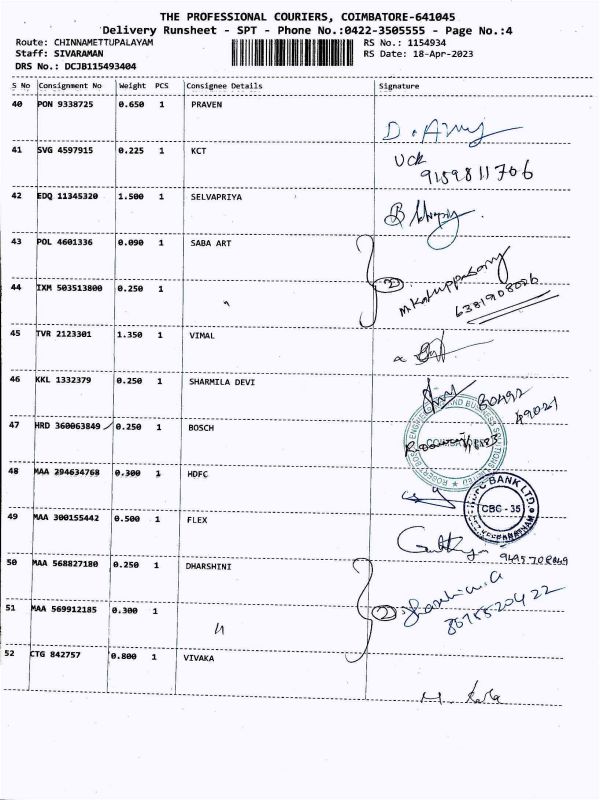 THE PROFESSIONAL COURIERS, COIMBATORE-641045
Delivery Runsheet - SPT - Phone No.:0422-3505555 - Page No.:4
Route: CHINNAMETTUPALAYAM RS No.: 1154934
Staff: SIVARAMAN RS Date: 18-Apr-2023
DRS No.: DCJB115493404
S No Consignment No Weight PCS Consignee Details Signature
40 PON 9338725 0.650 1 PRAVEN
41 SVG 4597915 0.225 1 KCT
9159811706
42 EDQ 11345320 1.500 1 SELVAPRIYA
43 POL 4601336 0.090 1 SABA ART
2
44 IXM 503513800 0.250 1 "
6381908026
45 TVR 2123301 1.350 1 VIMAL
46 KKL 1332379 0.250 1 SHARMILA DEVI
80492
49021
47 HRD 360063849 0.250 1 BOSCH
48 MAA 294634768 0.300 1 HDFC
HDFC BANK LTD.
CBC - 35
49 MAA 300155442 0.500 1 FLEX
50 MAA 568827180 0.250 1 DHARSHINI
51 MAA 569912185 0.300 1 "
2
52 CTG 842757 0.800 1 VIVAKA